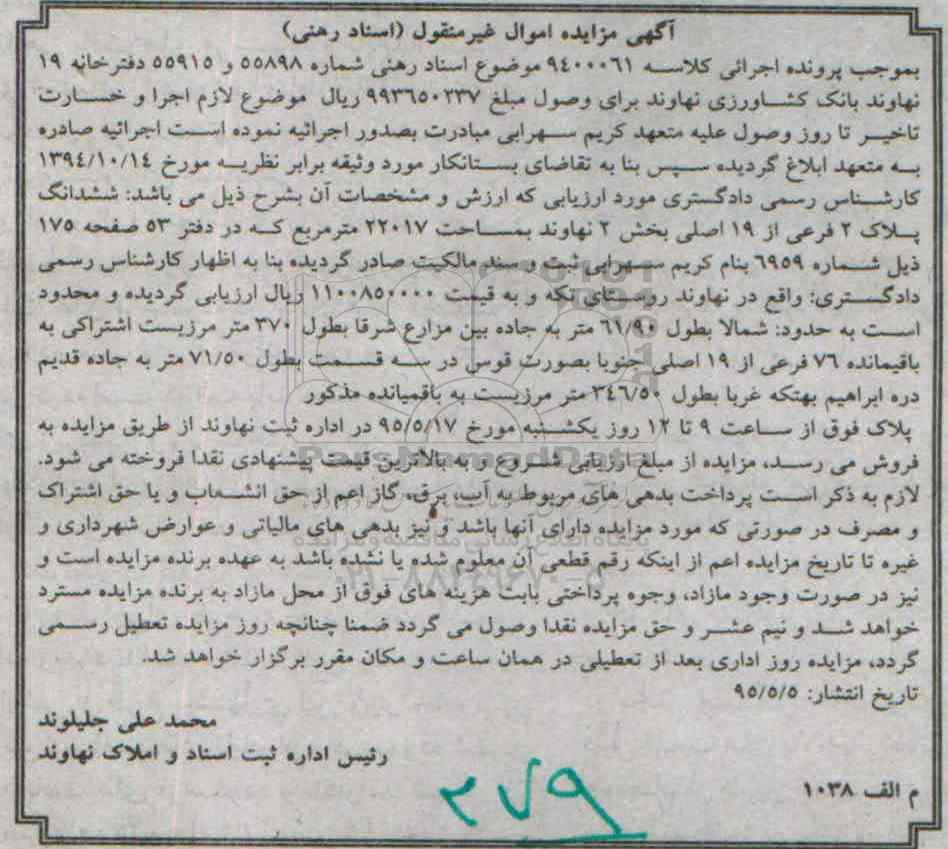 آگهی مزایده اموال غیرمنقول (اسناد رهنی)
بموجب پرونده اجرائی کلاسه ۹۴۰۰۰۶۱ موضوع اسناد رهنی شماره ۵۵۸۹۸ و ۵۵۹۱۵ دفترخانه ۱۹
نهاوند بانک کشاورزی نهاوند برای وصول مبلغ ۹۹۳۶۵۰۲۳۷ ریال موضوع لازم اجرا و خسارت
تاخیر تا روز وصول علیه متعهد کریم سهرابی مبادرت بصدور اجرائیه نموده است اجرائیه صادره
به متعهد ابلاغ گردیده سپس بنا به تقاضای بستانکار مورد وثیقه برابر نظریه مورخ ۱۳۹۴/۱۰/۱۴
کارشناس رسمی دادگستری مورد ارزیابی که ارزش و مشخصات آن بشرح ذیل می باشد: ششدانگ
پلاک ۲ فرعی از ۱۹ اصلی بخش ۲ نهاوند بمساحت ۲۲۰۱۷ مترمربع که در دفتر ۵۳ صفحه ۱۷۵
ذیل شماره ۶۹۵۹ بنام کریم سهرابی ثبت و سند مالکیت صادر گردیده بنا به اظهار کارشناس رسمی
دادگستری: واقع در نهاوند روستای تکه و به قیمت ۱۱۰۰۸۵۰۰۰۰ ریال ارزیابی گردیده و محدود
است به حدود: شمالا بطول ۶۱/۹۰ متر به جاده بین مزارع شرقا بطول ۳۷۰ متر مرزیست اشتراکی به
باقیمانده ۷۶ فرعی از ۱۹ اصلی جنوبا بصورت قوس در سه قسمت بطول ۷۱/۵۰ متر به جاده قدیم
دره ابراهیم بهتکه غربا بطول ۳۴۶/۵۰ متر مرزیست به باقمیانده مذکور
پلاک فوق از ساعت ۹ تا ۱۲ روز یکشنبه مورخ ۹۵/۵/۱۷ در اداره ثبت نهاوند از طریق مزایده به
فروش می رسد، مزایده از مبلغ ارزیابی شروع و به بالاترین قیمت پیشنهادی نقدا فروخته می شود.
لازم به ذکر است پرداخت بدهی های مربوط به آب، برق، گاز اعم از حق انشعاب و یا حق اشتراک
و مصرف در صورتی که مورد مزایده دارای آنها باشد و نیز بدهی های مالیاتی و عوارض شهرداری و
غیره تا تاریخ مزایده اعم از اینکه رقم قطعی آن معلوم شده یا نشده باشد به عهده برنده مزایده است و
نیز در صورت وجود مازاد، وجوه پرداختی بابت هزینه های فوق از محل مازاد به برنده مزایده مسترد
خواهد شد و نیم عشر و حق مزایده نقدا وصول می گردد ضمنا چنانچه روز مزایده تعطیل رسمی
گردد، مزایده روز اداری بعد از تعطیلی در همان ساعت و مکان مقرر برگزار خواهد شد.
تاریخ انتشار: ۹۵/۵/۵
محمد علی جلیلوند
رئیس اداره ثبت اسناد و املاک نهاوند
م الف ۱۰۳۸
۲۷۹
ParsNamadData
۰۲۱-۸۸۳۴۹۶۷۰-۵